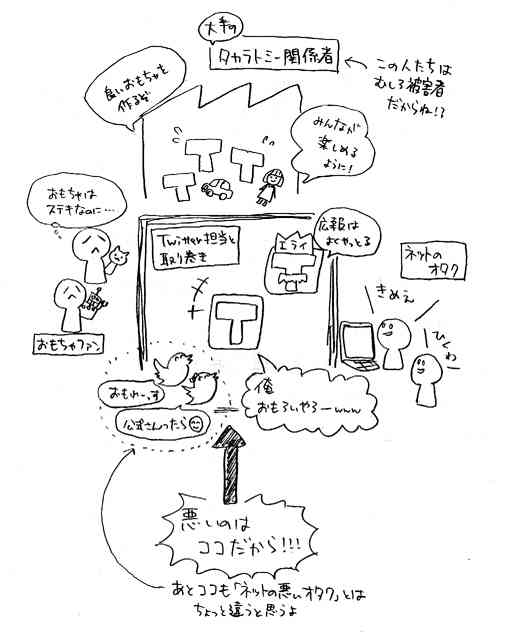 大手の
タカラトミー関係者
この人たちは
むしろ被害者
だからね!?
良いおもちゃを
作るぞ
みんなが
楽しめる
ように!
おもちゃは
ステキなのに…
おもちゃファン
Twitter担当と
取り巻き
エライ
広報は
よくやっとる
ネットの
オタク
きめぇ
ひくわー
おもれーっす
公式さんったら
俺
おもろいやろーwww
悪いのは
ココだから!!!
あとココも「ネットの悪いオタク」とは
ちょっと違うと思うよ